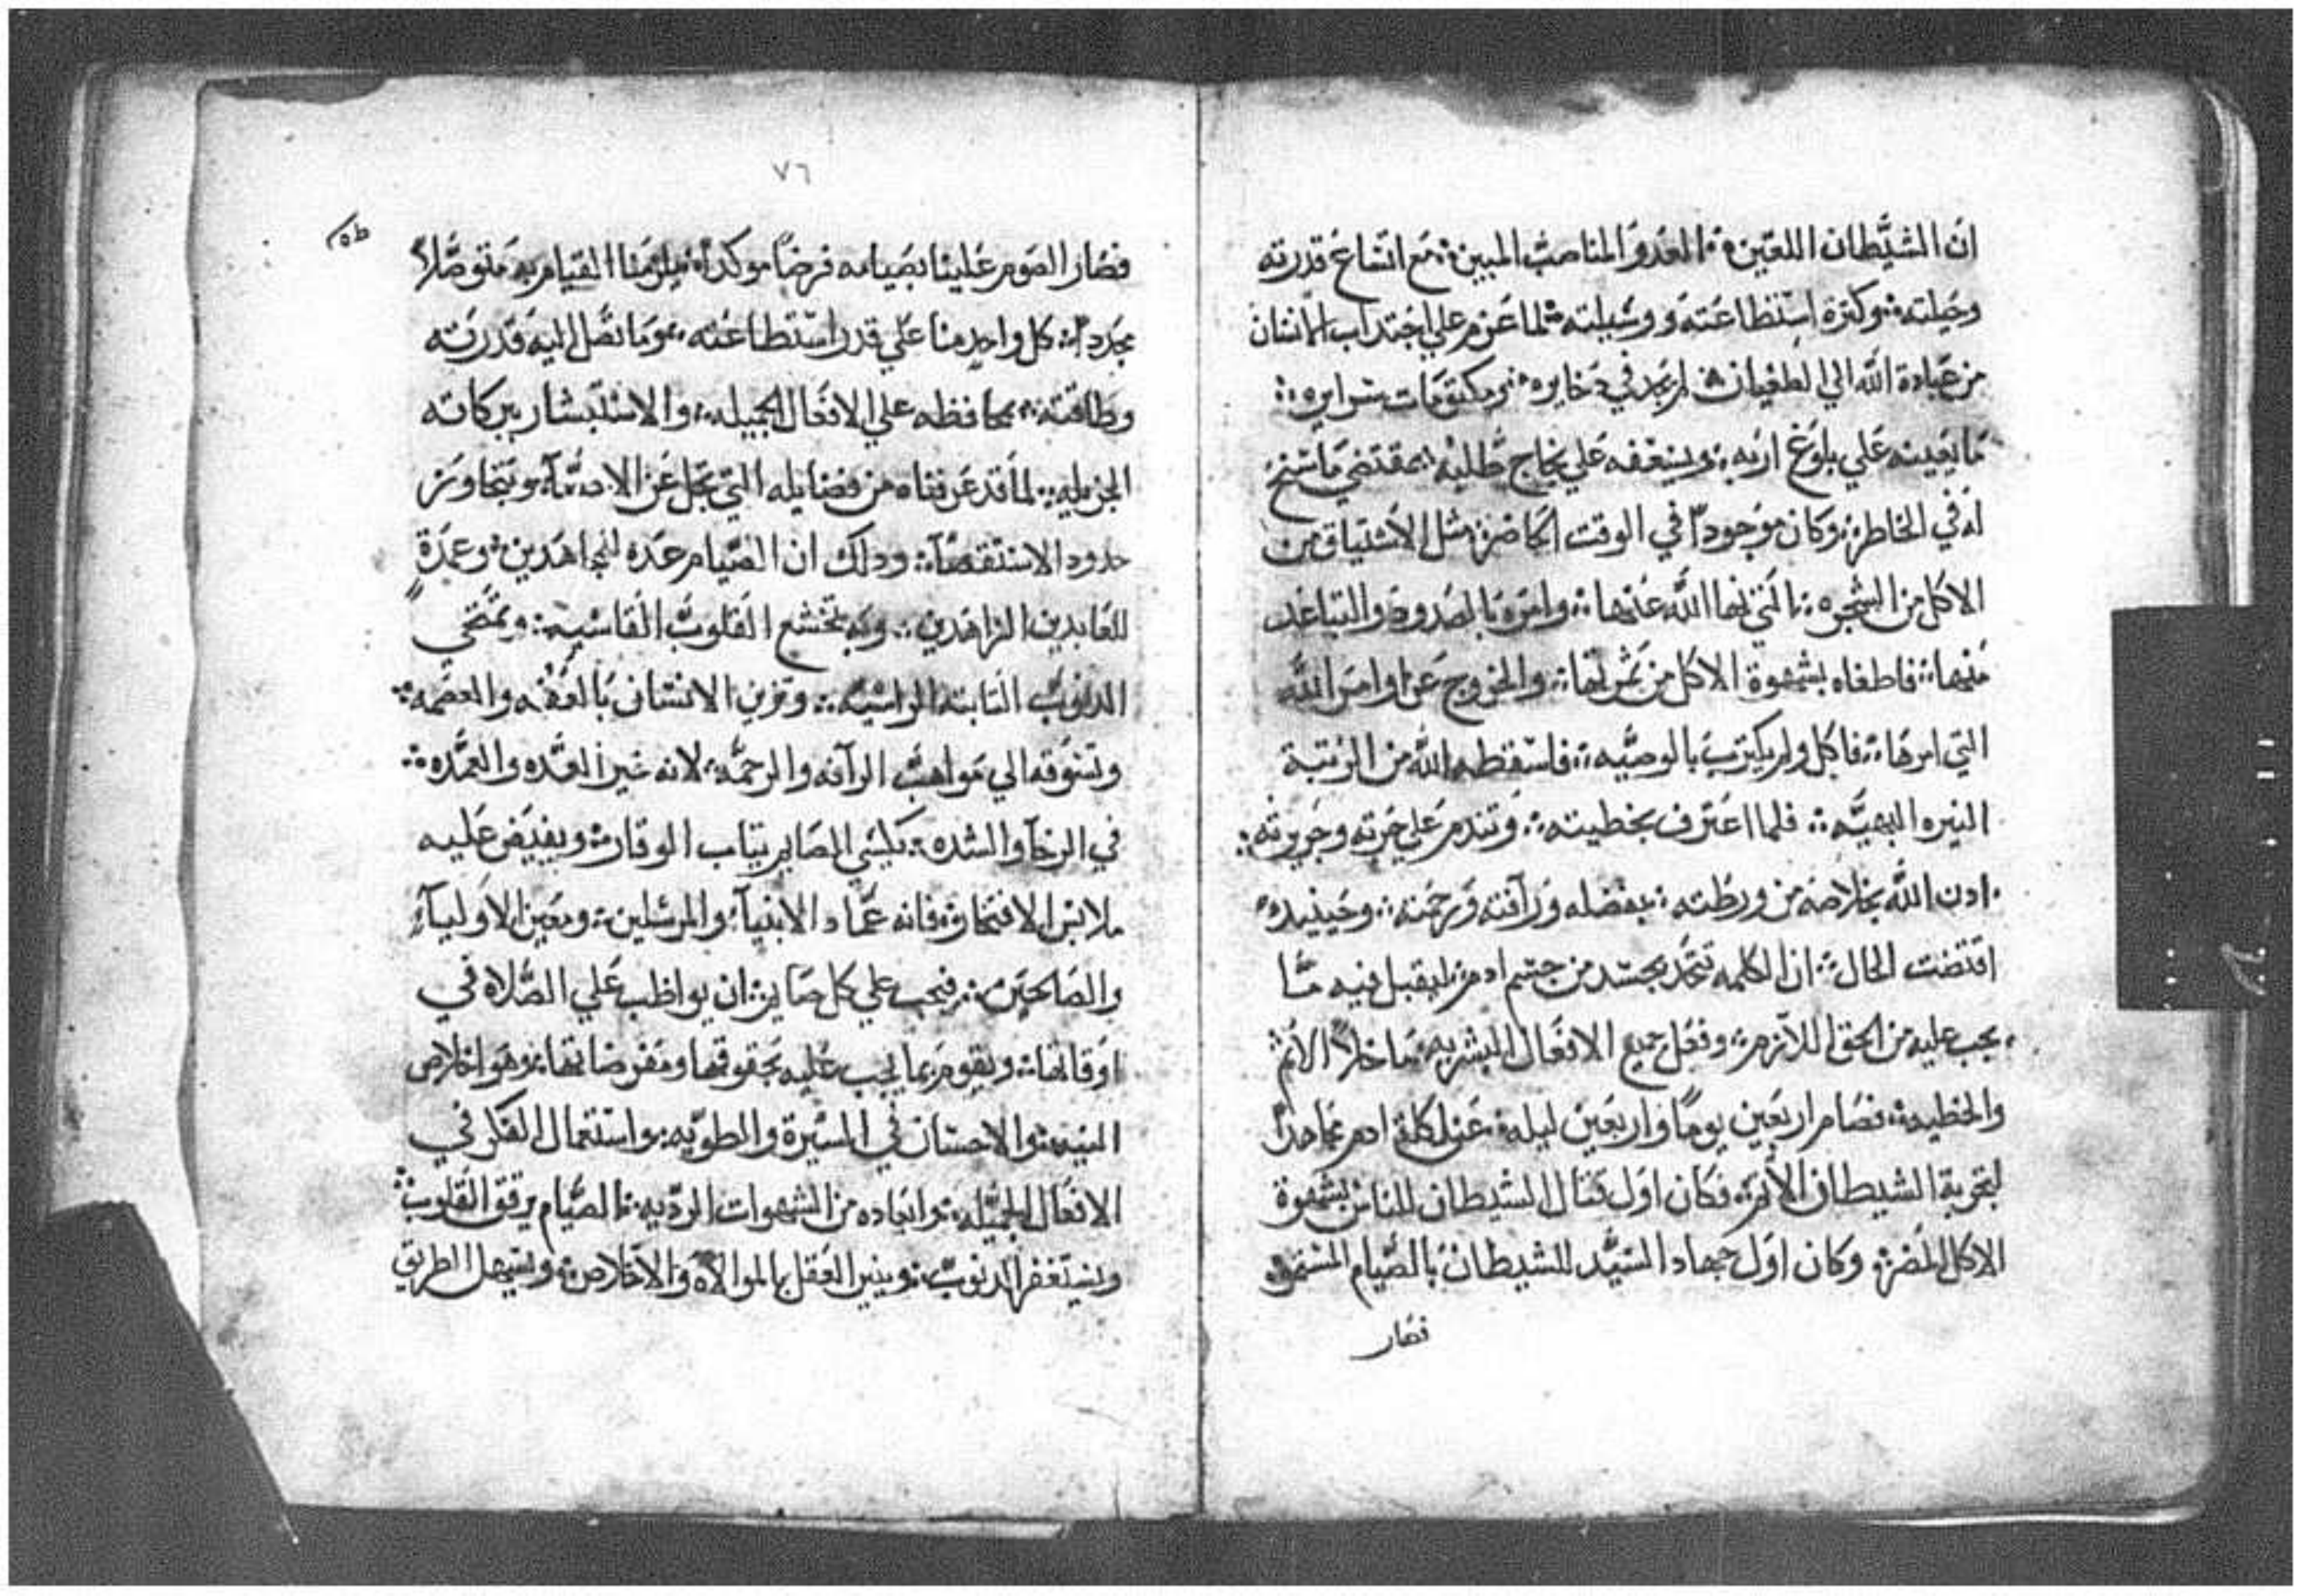 ان الشيطان اللعين ∴ العدو المناصب المبين ∴ مع اتساع قدرته
وحيلته ∴ وكثرة استطاعته ووسيلته ∴ لما عزم علي اجتداب الانسان
من عبادة الله الي الطغيان ∴ لم يجد في دخايره ∴ ومكتومات سرايره ∴
ما يعينه علي بلوغ اربه ∴ ويسعفه علي نجاح طلبه ∴ بمقتضي ما سنح
له في الخاطر ∴ وكان موجودا في الوقت الحاضر ∴ مثل الاشتياق من
الاكل من الشجره ∴ التي نهاه الله عنها ∴ وامره بالصدود والتباعد
منها ∴ فاطغاه بشهوة الاكل من ثمرتها ∴ والخروج عن اوامر الله
التي امرها ∴ فاكل ولم يكترت بالوصيه ∴ فاسقطه الله من الرتبة
النيره البهيه ∴ فلما اعترف بخطيته ∴ وتندم علي وجريرته ∴
ادن الله بخلاصه من ورطته ∴ بفضله ورآفته ورحمته ∴ وحينيد
اقتضت الحال ∴ ان الكلمه تتحد بجسد من جسم ادم ∴ ليقبل فيه ما
يجب عليه من الحق اللازم ∴ وفعل جميع الافعال البشريه ∴ ما خلا الاثم
والخطيه ∴ فصام اربعين يوما واربعين ليله ∴ عن اكلة ادم مجاهدا
لتجربة الشيطان فكان اول قتال الشيطان للناس بشهوة
الاكل المضره وكان اول جهاد السيد للشيطان بالصيام
فصار
٧٦
فصار الصوم علينا بصيامه فرضا موكدا ∴ يلزمنا القيام به متوصلا
مجردا ∴ كل واحد منا علي قدر استطاعته ∴ وما تصل اليه قدرته
وطاقته ∴ محافظه علي الافعال الجميله ∴ والاستبشار ببركاته
الجزيله ∴ لما قد عرفناه من فضايله التي تجل عن ويتجاوز
حدود الاستقصآ ∴ ودلك ان الصيام عده للمجاهدين ∴ وعمدة
للعابدين الزاهدين ∴ وبه تخشع القلوب القاسيه ∴ وتمتحي
الدنوب التابته الراسيه ∴ وتزين الانسان بالعفه والعصمه ∴
وتسوقه الي مواهب الرآفه والرحمه ∴ لانه خير العده والعمده ∴
في الرخآ والشده ∴ يكسي الصايم تياب الوقار ∴ ويفيض عليه
ملابس الافتخار ∴ فانه عماد الانبيآ والمرسلين ∴ ومعين الاوليآ
والصالحين ∴ فيجب علي كل صايم ∴ ان يواظب علي الصلاه في
اوقاتها ∴ ويقوم بما يجب عليه بحقوقها ومفروضاتها ∴ وهو اخلاص
النيه ∴ والاحسان في السيرة والطويه ∴ واستعمال الفكر في
الافعال الجميله ∴ وابعاده من الشهوات الرديه ∴ الصيام يرقق القلوب ∴
ويستغفر الدنوب ∴ وينير العقل بالموالاه والاخلاص ∴ ويسهل الطريق